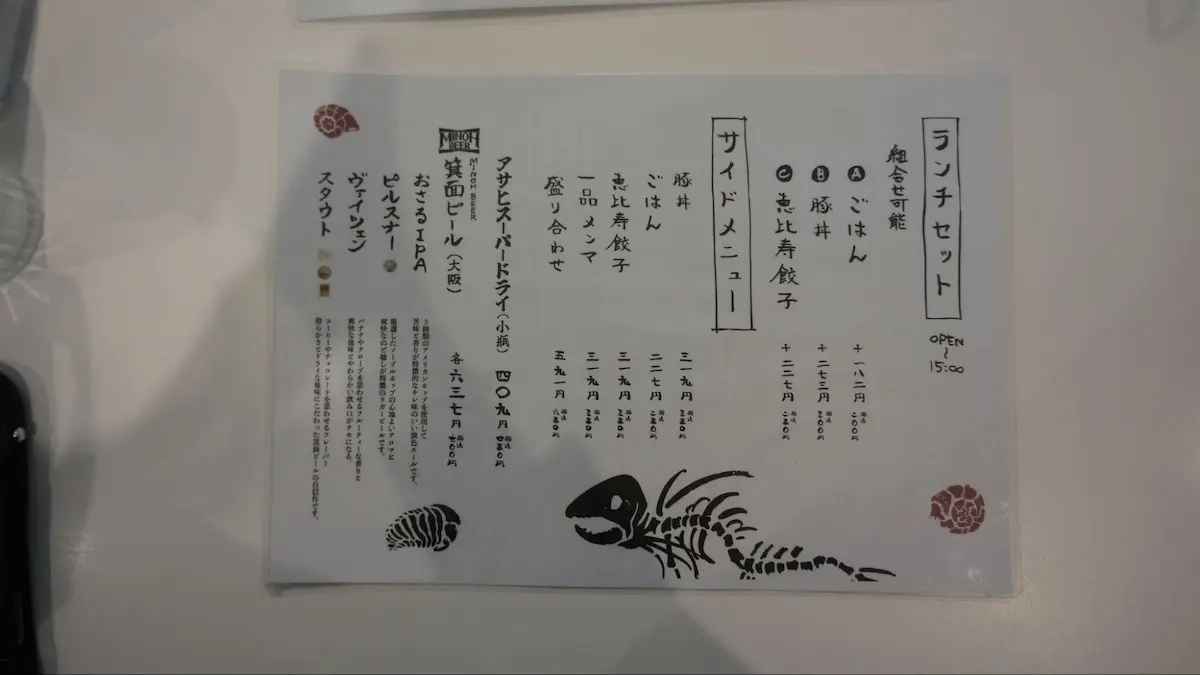 ランチセット
OPEN
〜
15:00
組合せ可能
Ⓐ ごはん +一八二円 税込 二〇〇円
Ⓑ 豚丼 +二七三円 税込 三〇〇円
Ⓒ 恵比寿餃子 +二二七円 税込 二五〇円
サイドメニュー
豚丼 三一九円 税込 三五〇円
ごはん 二二七円 税込 二五〇円
恵比寿餃子 三一九円 税込 三五〇円
一品メンマ 三一九円 税込 三五〇円
盛り合わせ 五九一円 税込 六五〇円
アサヒスーパードライ(小瓶) 四〇九円 税込 四五〇円
MINOH BEER
MINOH BEER
箕面ビール(大阪) 各 六三七円 税込 七〇〇円
おさるIPA
3種類のアメリカンホップを使用して
苦味と香りが特徴的なキレ味のいい淡色エールです。
ピルスナー
厳選したノーブルホップの心地よいアロマと
爽快なのど越しが特徴のラガービールです。
ヴァイツェン
バナナやクローブを思わせるフルーティーな香りと
爽快な後味とやわらかい飲み口がクセになる。
スタウト
コーヒーやチョコレートを思わせるフレーバー
滑らかさとドライな後味にこだわった黒ビールの自信作です。